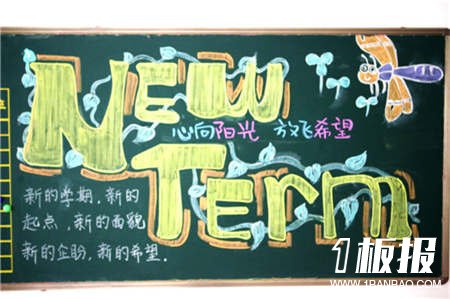 New
心向阳光 放飞希望
Term
新的学期，新的
起点，新的面貌
新的企盼，新的希望．
1板报
WWW.1BANBAO.COM